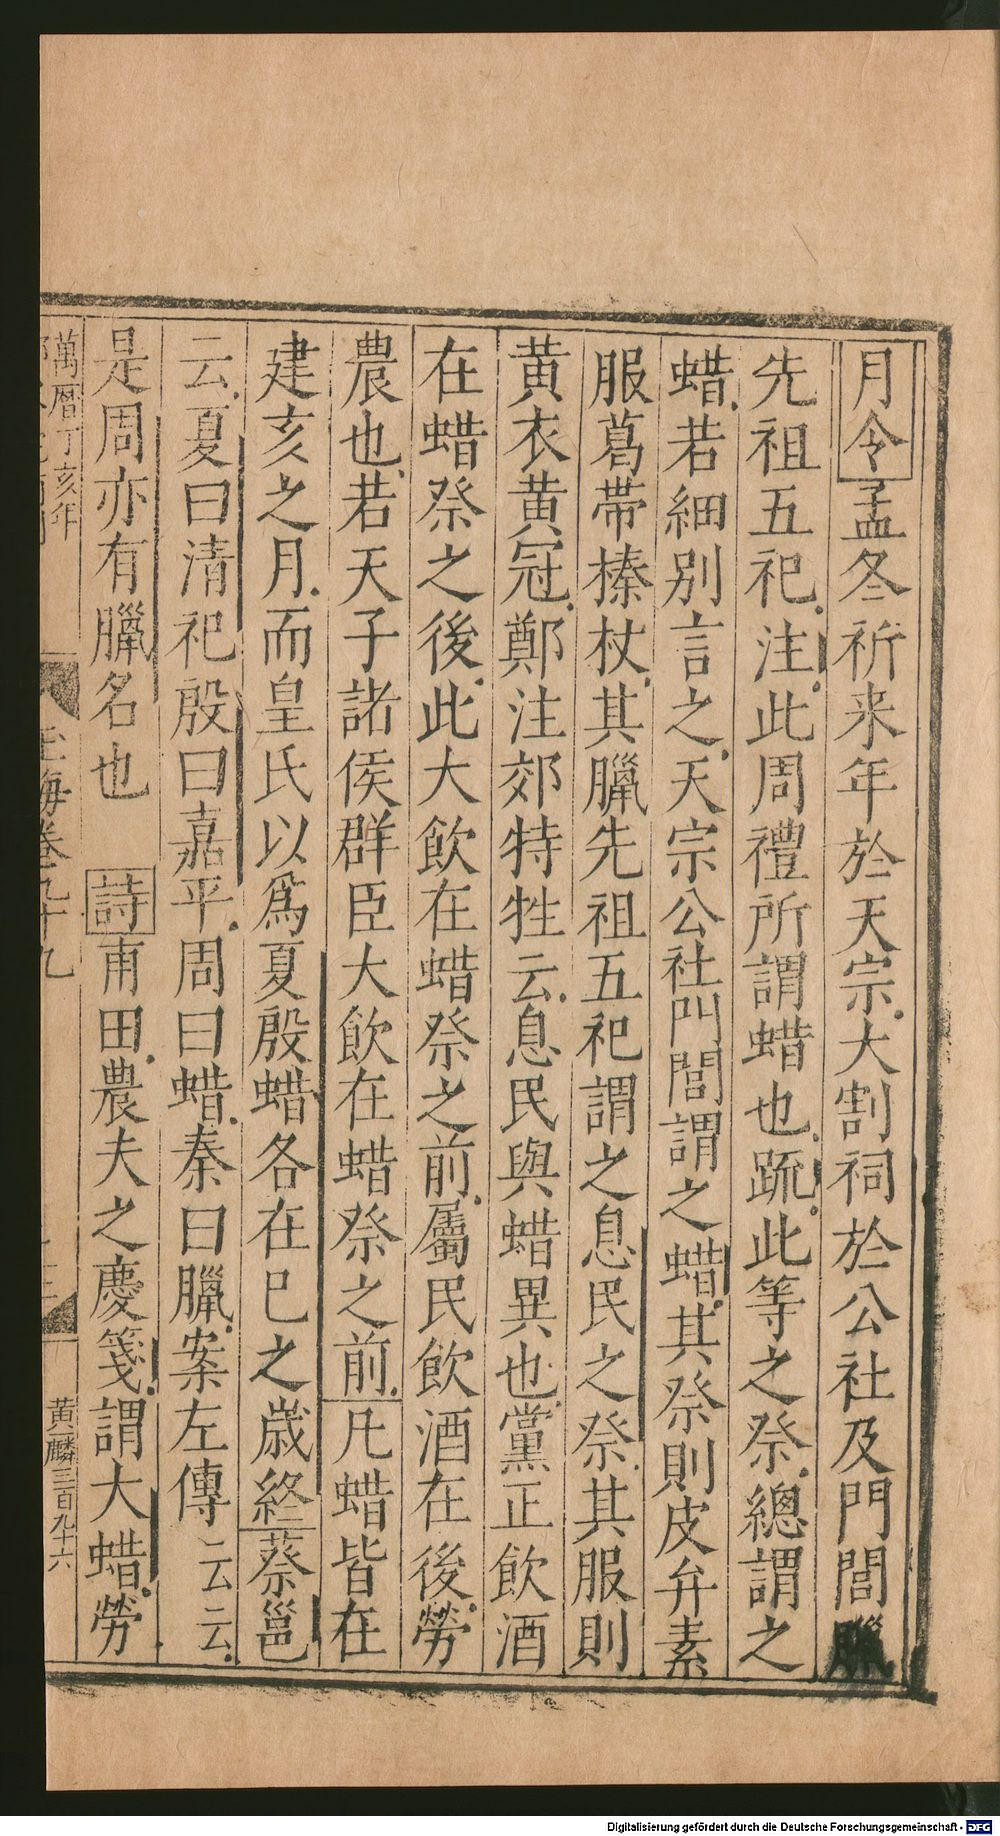 月令孟冬祈来年於天宗大割祠於公社及門閭臘
先祖五祀注此周禮所謂蜡也䟽此等之祭總謂之
蜡若細別言之天宗公社門閭謂之蜡其祭則皮弁素
服葛帶榛杖其臘先祖五祀謂之息民之祭其服則
黄衣黄冠鄭注郊特牲云息民與蜡異也黨正飲酒
在蜡祭之後此大飲在蜡祭之前屬民飲酒在後勞
農也若天子諸侯群臣大飲在蜡祭之前凡蜡皆在
建亥之月而皇氏以為夏殷蜡各在巳之歲終蔡邕
云夏曰清祀殷曰嘉平周曰蜡秦曰臘案左傳云云
是周亦有臘名也 詩甫田農夫之慶箋謂大蜡勞
萬曆丁亥年
玉海卷九十九
黄麟三百九十六
Digitalisierung gefördert durch die Deutsche Forschungsgemeinschaft - DFG